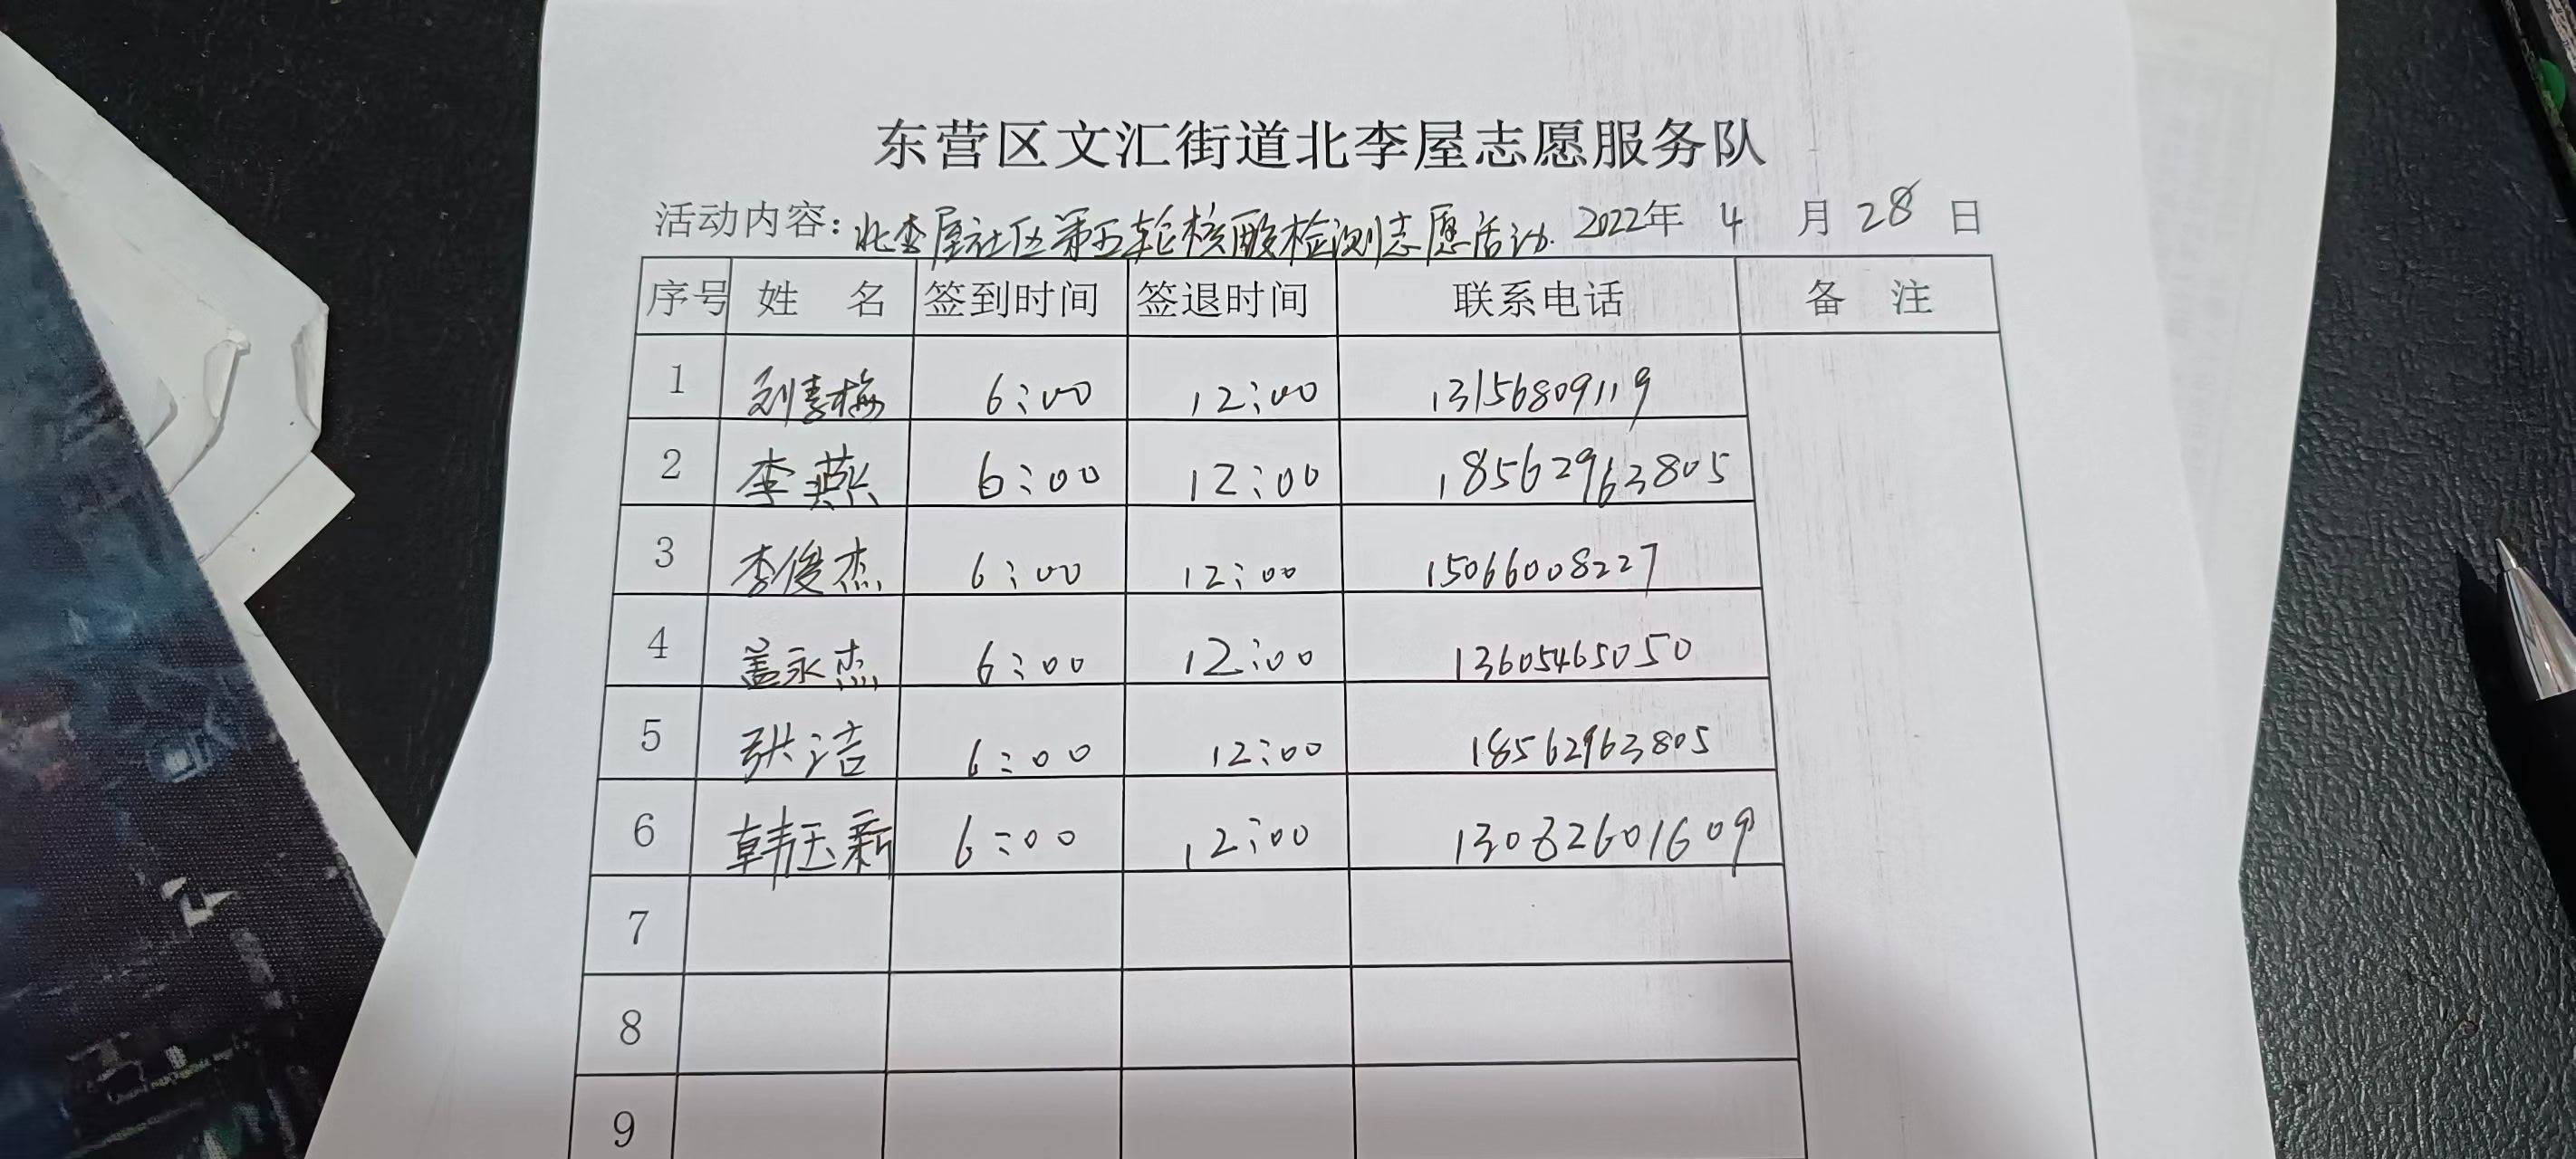 东营区文汇街道北李屋志愿服务队
活动内容：北李屋社区第五轮核酸检测志愿活动. 2022年 4 月 28 日
序号 姓 名 签到时间 签退时间 联系电话 备 注
1 刘青梅 6:00 12:00 13156809119
2 李燕 6:00 12:00 18562963805
3 李俊杰 6:00 12:00 15066008227
4 盖永杰 6:00 12:00 13605465050
5 张洁 6:00 12:00 18562963805
6 韩玉新 6:00 12:00
7
8
9